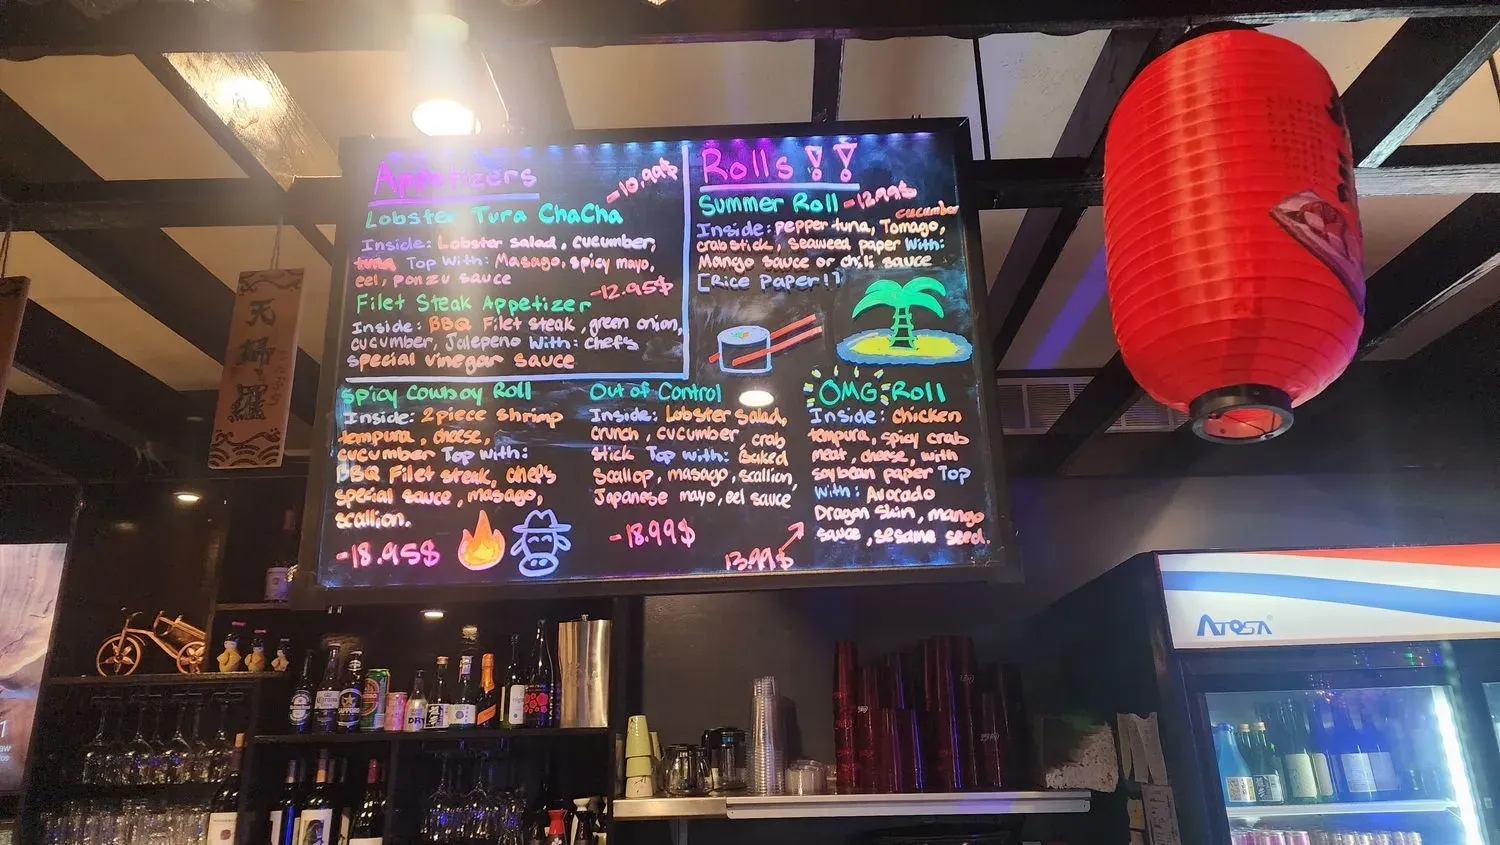 Appetizers
-10.99$
Lobster Tura ChaCha
Inside: Lobster salad, cucumber,
tuna Top With: Masago, spicy mayo,
eel, ponzu sauce
-12.95$
Filet Steak Appetizer
Inside: BBQ Filet steak, green onion,
cucumber, Jalepeno With: chefs
special vinegar sauce
Rolls !!
Summer Roll -12.99$
cucumber
Inside: pepper tuna, Tomago,
crab stick, seaweed paper With:
Mango sauce or chili sauce
[Rice Paper!]
Spicy Cowboy Roll
Inside: 2piece shrimp
tempura, cheese,
cucumber Top with:
BBQ Filet steak, chefs
special sauce, masago,
scallion.
-18.95$
Out of Control
Inside: Lobster salad,
crunch, cucumber, crab
stick Top with: Baked
Scallop, masago, scallion,
Japanese mayo, eel sauce
-18.99$
OMG Roll
Inside: chicken
tempura, spicy crab
meat, cheese, with
soybean paper Top
With: Avocado
Dragon Skin, mango
sauce, sesame seed.
13.99$
天
婦
羅
ATOSA
SAPPORO
DRY